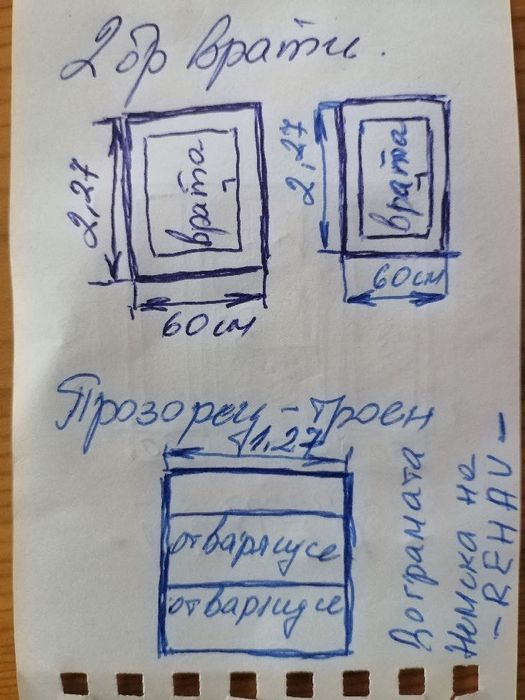 2 бр врати.
2,27
врата
60 см
2,27
врата
60 см
Прозорец - троен
1,27
отварящусе
отварящусе
Дограмата
Немска на
- REHAU -